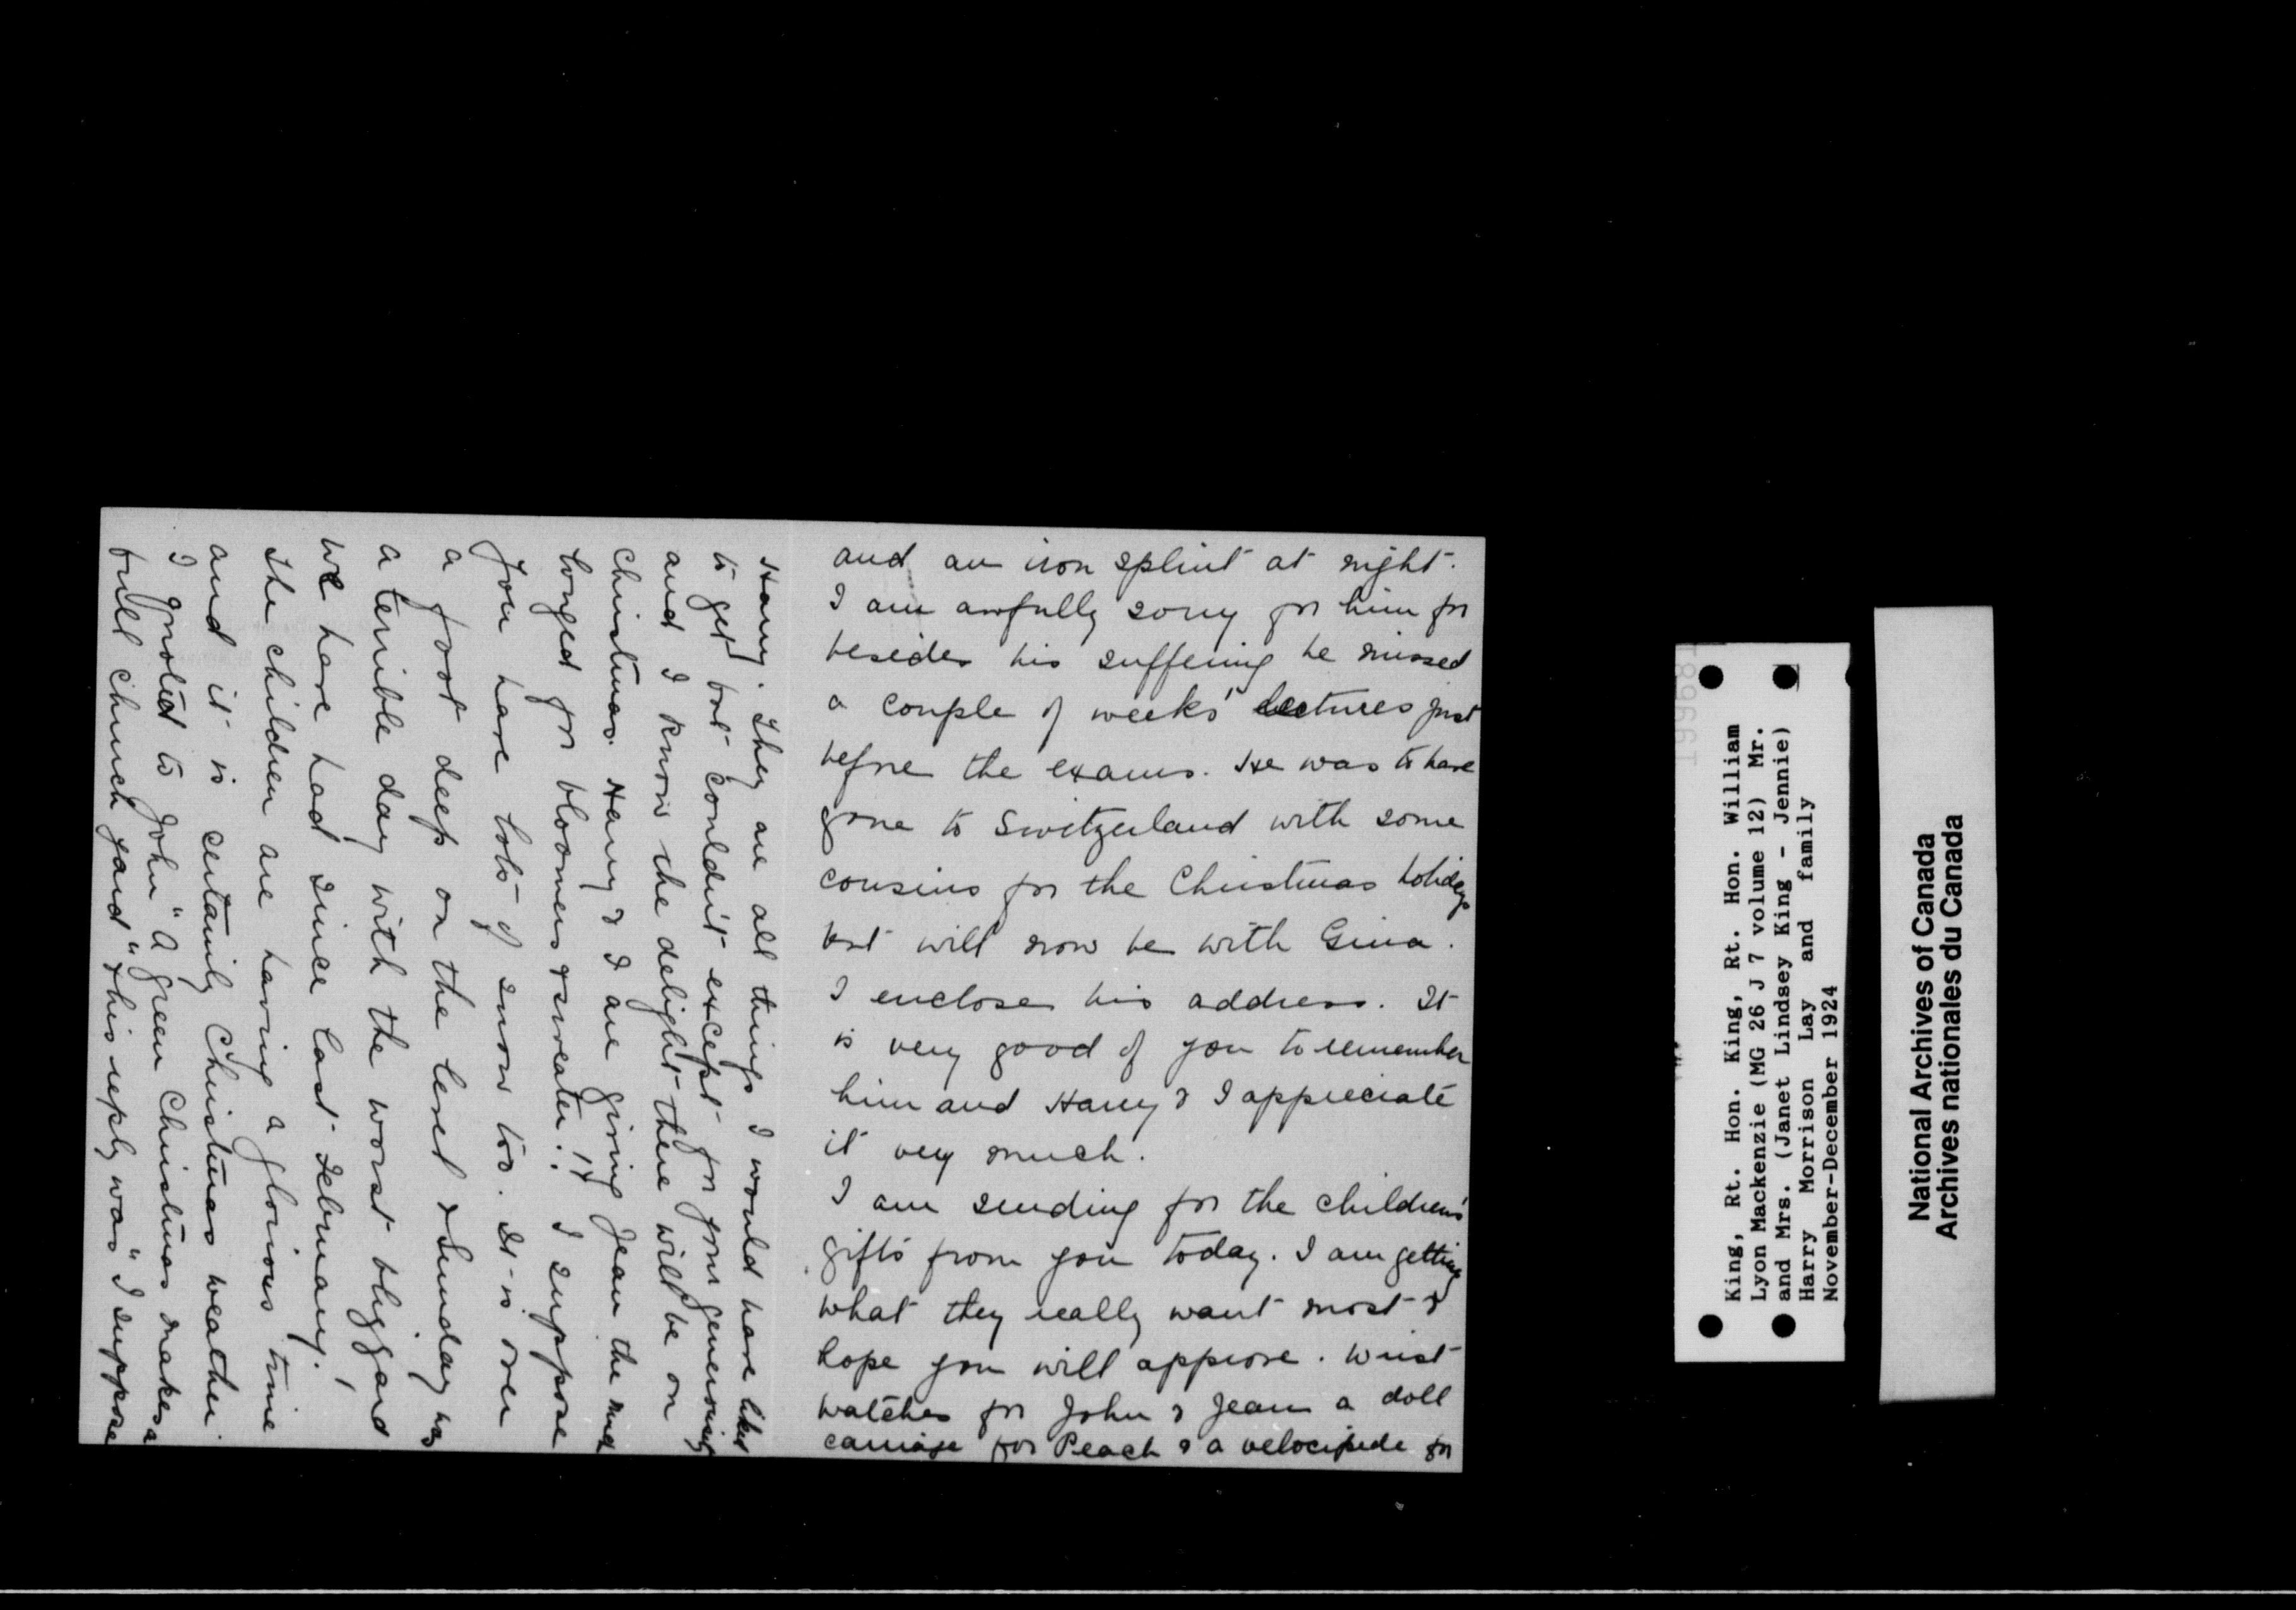 and an iron splint at night.
I am awfully sorry for him for
besides his suffering he missed
a couple of weeks' lectures just
before the exams. He was to have
gone to Switzerland with some
cousins for the Christmas holidays
but will now be with Gina.
I enclose his address. It
is very good of you to remember
him and Harry & I appreciate
it very much.
I am sending for the children's
gifts from you today. I am getting
what they really want most &
hope you will approve. Wrist
watches for John & Jean a doll
carriage for Peach & a velocipede for
Harry. They are all things I would have liked
to get but couldn't except for your generosity
and I know the delight there will be on
Christmas. Harry & I are giving Jean the much
longed for bloomers & sweater!! I suppose
you have lots of snow too. It is over
a foot deep on the level & Sunday was
a terrible day with the worst blizzard
we have had since last February.
The children are having a glorious time
and it is certainly Christmas weather.
I quoted to John "A green Christmas makes a
full church yard" & his reply was "I suppose
King, Rt. Hon. King, Rt. Hon. William
Lyon Mackenzie (MG 26 J 7 volume 12) Mr.
and Mrs. (Janet Lindsey King - Jennie)
Harry Morrison Lay and family
November-December 1924
National Archives of Canada
Archives nationales du Canada